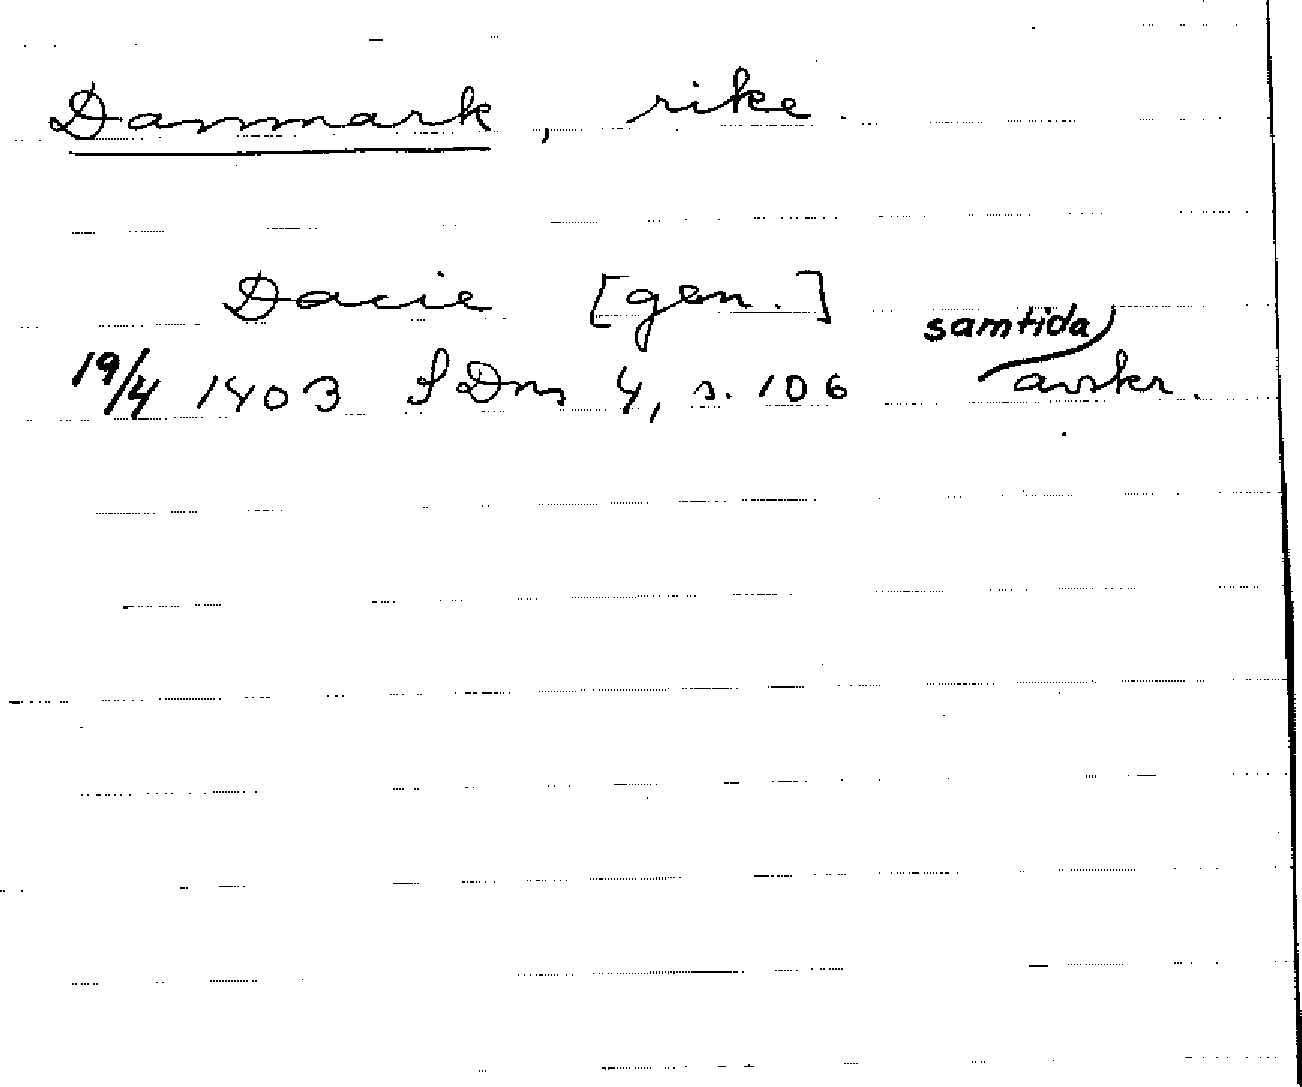 Danmark, rike
Dacie [gen.]
19/4 1403 SDns 4, s. 106 samtida avskr.